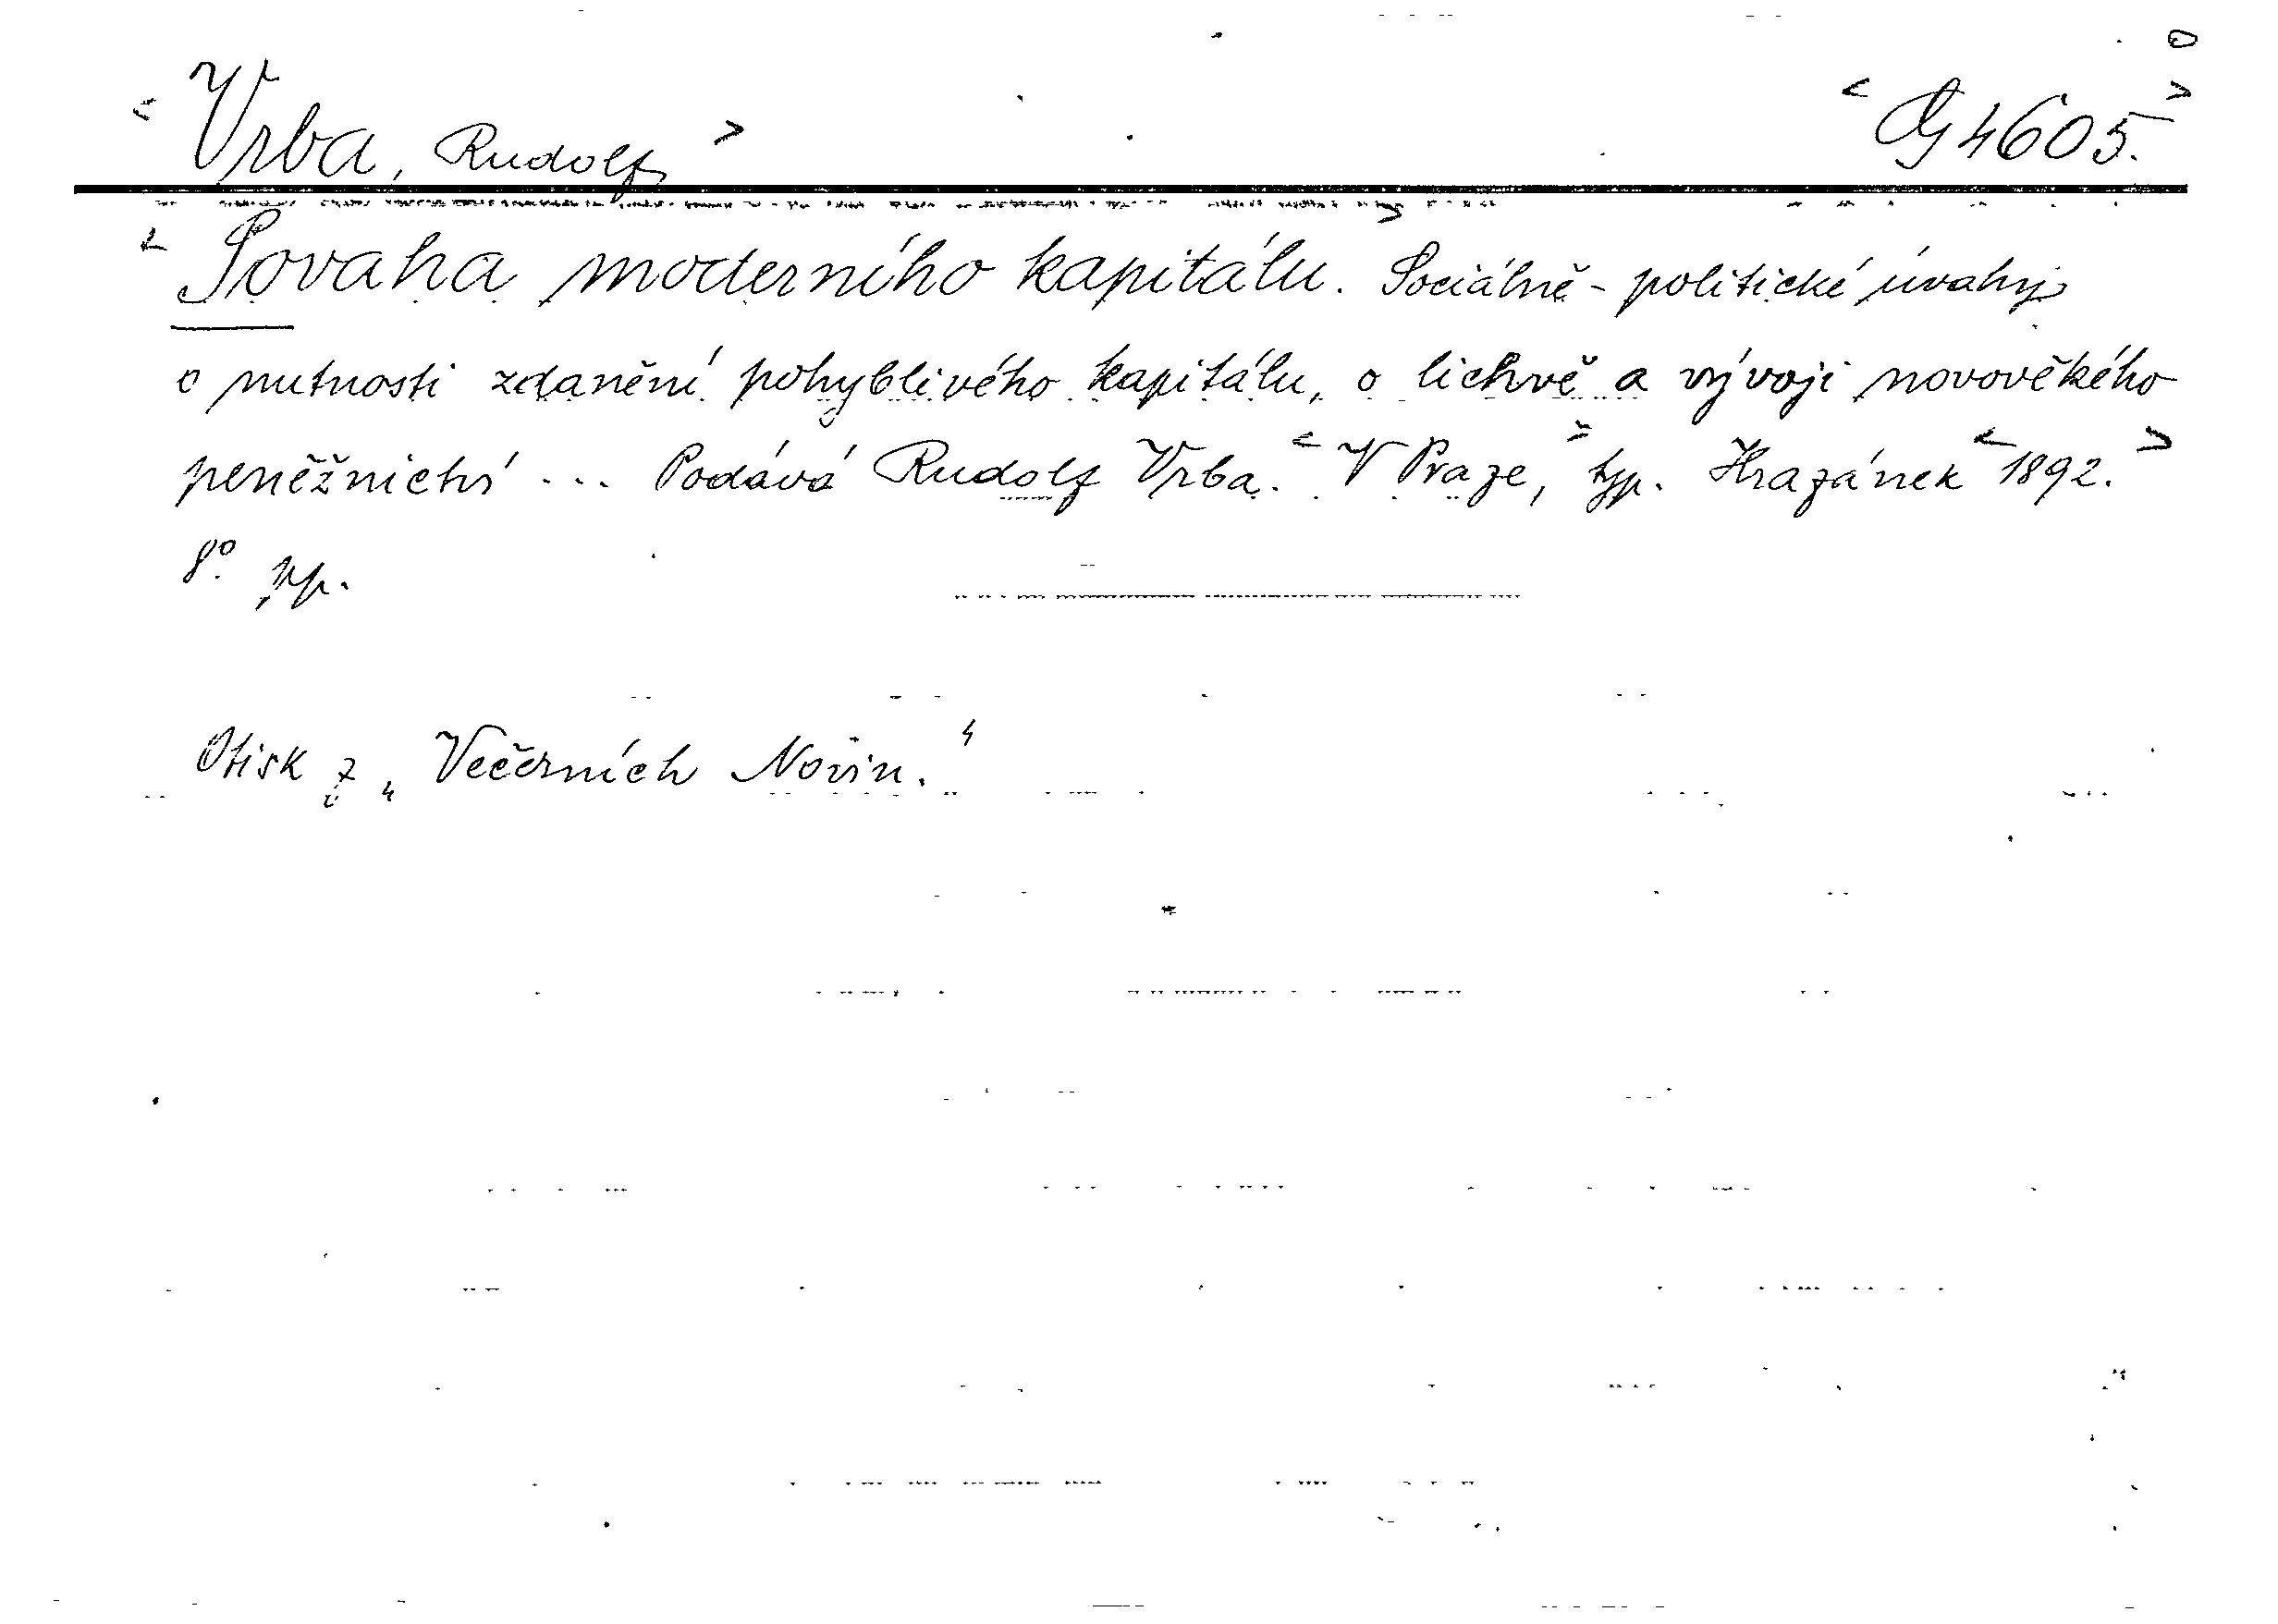 < Vrba, Rudolf > < G 4605. >
< Povaha moderního kapitálu. > Sociálně-politické úvahy
o nutnosti zdanění pohyblivého kapitálu, o lichvě a vývoji novověkého
peněžnictví ... Podává Rudolf Vrba. < V Praze, > typ. Hrazánek < 1892. >
8°
Otisk z „Večerních Novin.“